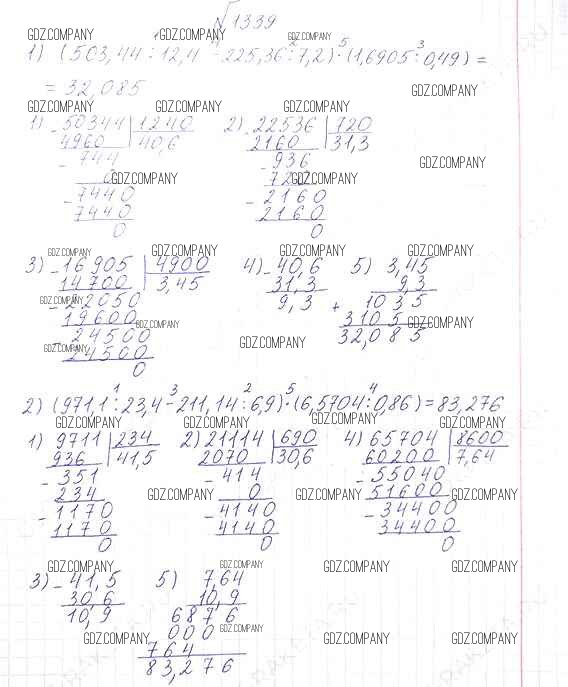 √1339
GDZ.COMPANY GDZ.COMPANY GDZ.COMPANY
1) (503,44 : 12,4 - 225,36 : 7,2) · (1,6905 : 0,49) =
= 32,085
GDZ.COMPANY
GDZ.COMPANY GDZ.COMPANY GDZ.COMPANY
1) 50344 | 1240 2) 22536 | 720
4960 40,6 2160 31,3
- 744 - 936
GDZ.COMPANY
0 720
GDZ.COMPANY GDZ.COMPANY
- 7440 - 2160
7440 2160
0 0
GDZ.COMPANY GDZ.COMPANY GDZ.COMPANY GDZ.COMPANY
3) - 16905 | 4900 4) - 40,6 5) 3,45
14700 3,45 31,3 9,3
GDZ.COMPANY
- 22050 9,3 + 1035
19600 3105
GDZ.COMPANY GDZ.COMPANY
24500 32,085
GDZ.COMPANY GDZ.COMPANY
24500
0
2) (971,1 : 23,4 - 211,14 : 6,9) · (6,5704 : 0,86) = 83,276
GDZ.COMPANY GDZ.COMPANY GDZ.COMPANY GDZ.COMPANY
1) 9711 | 234 2) 21114 | 690 4) 65704 | 8600
936 41,5 2070 30,6 60200 7,64
- 351 - 414 - 55040
234 0 51600
GDZ.COMPANY GDZ.COMPANY GDZ.COMPANY
- 1170 - 4140 - 34400
1170 4140 34400
0 0 0
GDZ.COMPANY GDZ.COMPANY GDZ.COMPANY GDZ.COMPANY
3) - 41,5 5) 7,64
30,6 10,9
10,9 6876
000
GDZ.COMPANY
GDZ.COMPANY GDZ.COMPANY GDZ.COMPANY
764
83,276